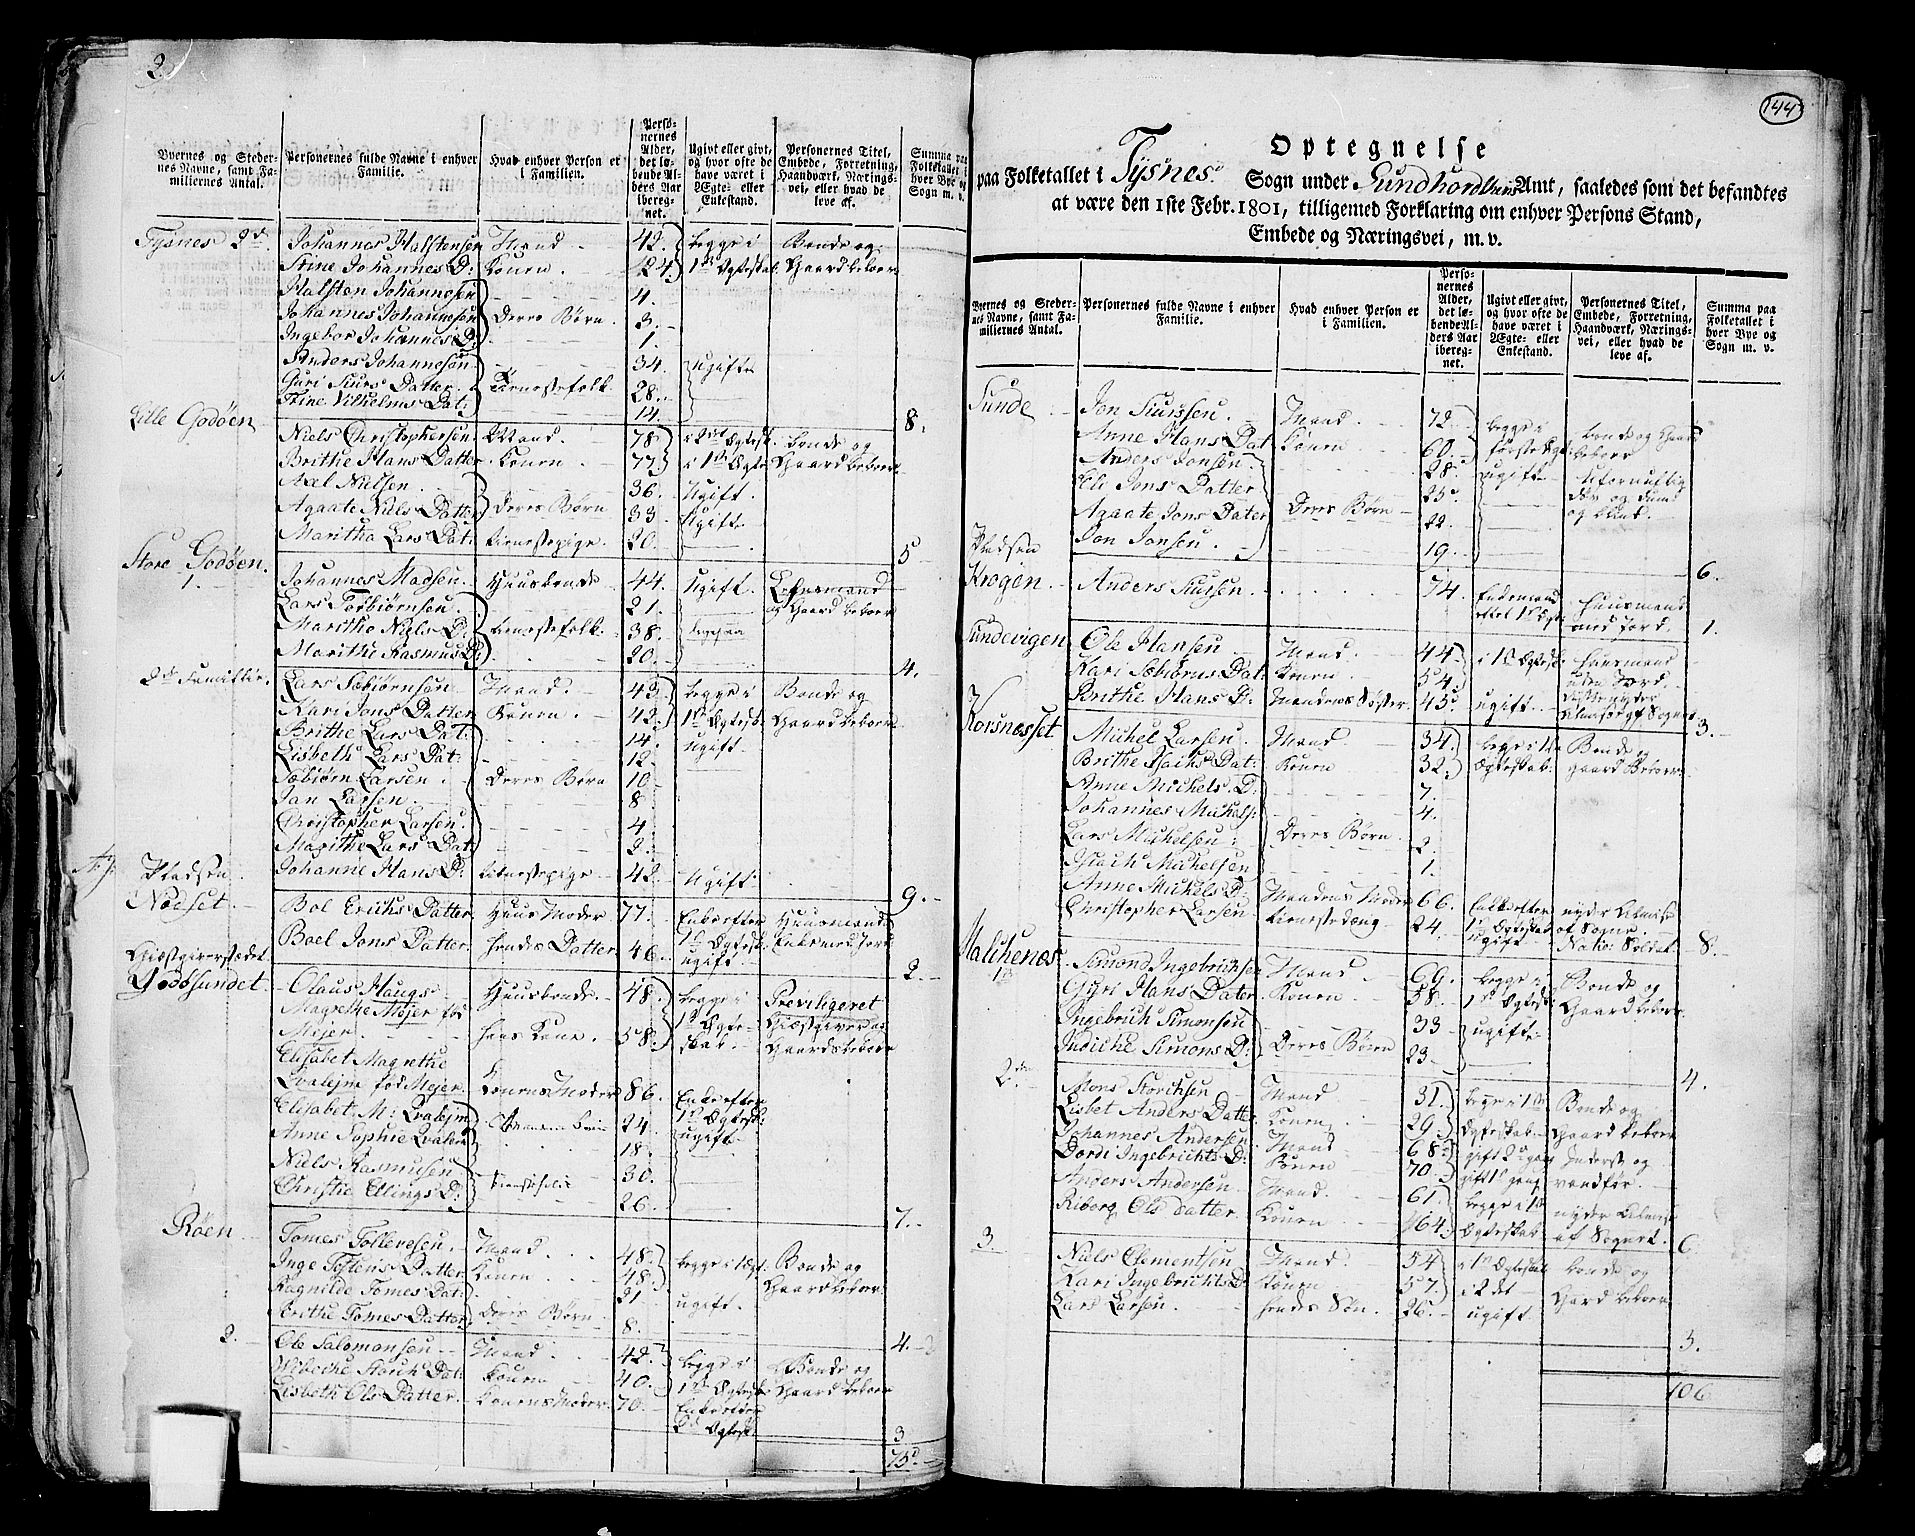 2.
Byernes og Steder-
nes Navne, samt Fa-
miliernes Antal.
Personernes fulde Navne i enhver
Familie.
Hvad enhver Person er
i Familien.
Perso-
nernes
Alder,
det lø-
bende Al-
ders Aar
iberег-
net.
Ugivt eller givt,
og hvor ofte de
have været i
Ægte- eller
Enkestand.
Personernes Titel,
Embede, Forretning,
Haandværk, Nærings-
vei, eller hvad de
leve af.
Summa paa
Folketallet i
hver Bye og
Sogn m. v.
Tysnes 2d. Johannes Halstensen Mand 42. begge i Bonde og
Stine Johannes D: Konen. 24. 1ste Ægteskab. Gaardbeboer
Halsten Johannesen 4.
Johannes Johannesen Deres Børn 3.
Ingebor Johannes D: 1.
Anders Johannesen 34. ugifte
Guri Siurs Datter Tienestefolk 28.
Stine Vilhelms Dat: 14. 8.
Lille Godøen Niels Christophersen Mand. 78. i 2det Ægtesk. bonde og
Brithe Hans Datter Konen. 77. i 1ste Ægte Gaardbeboer
Axel Nielsen 36. Ugift.
Agaate Niels Datter Deres Børn 33. Ugift.
Maritha Lars Dat: tienestepige. 20. 5
Store Godøen. 1. Johannes Madsen Huusbonde 44. Ugift. Lehnsmand
Lars Torbiørnsen 21. og Gaardbeboer
Marithe Niels D. tienestefolk 38. ligesaa
Marithe Rasmus D: 20. 4.
2de Familie. Lars Sæbiørnsøn Mand. 43. begge i Bonde og
Kari Jons Datter Konen. 42. 1ste Ægtesk. Gaardbeboer
Brithe Lars Dat: 14. ugift.
Lisbeth Lars Dat: 12.
Sæbiørn Larsen Deres Børn 10
Jan Larsen 8
Christopher Larsen 4.
Marithe Lars Dat: 2.
Johanne Hans D. tienestepige 42. Ugift. 9.
Pladsen
Nødset Bol Erichs Datter Huus Moder 77. Enke efter Huusmands
Boel Jons Datter. hendes Datter. 46. 1ste Ægtesk. Enke med Jord
ugift. 2.
Giæstgiverstædet
Godøsundet. Claus Haugs Huusbonde. 48. begge i Previligeret
Magrethe Mejer fød 1ste Ægte- Giæstgiver og
Mejer hans Kone. 58. skab. Gaardsbeboer
Elisabet Magrethe
Qvalejm fød Mejer Konens Moder 86. Enke efter
Elisabet M: Qvalejm 24. 1ste Ægtesk:
Anne Sophie Qvalejm 18. ugift
Niels Rasmusen 30.
Christie Ellings D: 26. 7.
Røen Tomes Tollevsen Mand 48. begge i 1 Ægt. Bonde og
Inge Tostens Datter Konen 48. Gaardbeboer
Ragnilde Tomes Dat: 21 ugift.
Brithe Tomes Datter Deres Børn 8. 4.
2. Ole Salomonsen Mand 42. begge i Bonde og
Wibecke Storch Dat: Konen 40. 1ste Ægtesk. Gaardbeboer
Lisbeth Ols Datter Konens Moder. 70. Enke efter
2d Ægtesk. 3
75
144
Optegnelse
paa Folketallet i Tysnes Sogn under Sundhordlens Amt, saaledes som det befandtes
at være den 1ste Febr. 1801, tilligemed Forklaring om enhver Persons Stand,
Embede og Næringsvei, m. v.
Byernes og Steder-
nes Navne, samt Fa-
miliernes Antal.
Personernes fulde Navne i enhver
Familie.
Hvad enhver Person er
i Familien.
Perso-
nernes
Alder,
det lø-
bende Al-
ders Aar
ibereg-
net.
Ugivt eller givt,
og hvor ofte de
have været i
Ægte- eller
Enkestand.
Personernes Titel,
Embede, Forretning,
Haandværk, Nærings-
vei, eller hvad de
leve af.
Summa paa
Folketallet i
hver Bye og
Sogn m. v.
Sunde Jon Siursen Mand 72. begge i bonde og Gaard
Anne Hans Dat Konen 60. første Ægt: beboer
Anders Jonsen 28. ugift ufornuftig
Eli Jons Datter 25. døv og Dum
Agaate Jons Dater Deres Børn 22. og blind.
Jon Jonsen 19. 6.
Pladsen
Krogen Anders Siursen 74. Enkemand huusmand
efter 1ste Ægt: med Jord. 1.
Sundevigen Ole Hansen Mand. 44. i 1ste Ægtesk. Huusmand
Kari Sæbiørns Dat. Konen 54. uden Jord.
Brithe Hans D: Mandens Søster 45. ugift nyder
Almisse af Sognet 3.
Korsnesset Michel Larsen Mand 34. begge i 1ste Bonde og
Brithe Isachs Dat: Konen 32. Ægteskab. gaard Beboer
Anne Michels D. 7.
Johannes Michels: 4.
Lars Michelsen Deres Børn 2.
Isach Michelsen 1.
Anne Michels D: Mandens Moder 66. Enke efter nyder Almisse
Christopher Larsen tienestedreng 24. 1ste Ægteskab af Sogne.
ugift Natio: Soldat 8.
Malchenes 1ste Simond Ingebrichtsen Mand 69. begge i Bonde og
Gyri Hans Dater Konen 58. 1ste Ægtesk: Gaardbeboer
Ingebrich Simonsen 33 ugifte
Indiche Simons D: Deres Børn 23. 4.
2de Mons Storchsen Mand 31. begge i 1ste Bonde og
Lisbet Anders Datter Konen 29. Ægteskab Gaardbeboer
Johannes Andersen Mand 68. gift 2 gang Inderst og
Dordi Ingebrichts D: Konen 70. gift 1ste gang vanfør.
Anders Andersen Mand. 61. begge i 1ste nyder Almisse
Riborg Ols datter Konen 64. Ægteskab af Sognet. 6.
3. Niels Clementsen Mand 54 i 1ste Ægteskab bonde og
Kari Ingebrichts D Konen 57. i 2det Gaard beboer
Lars Larsen hendes Søn. 26. ugift 3.
106